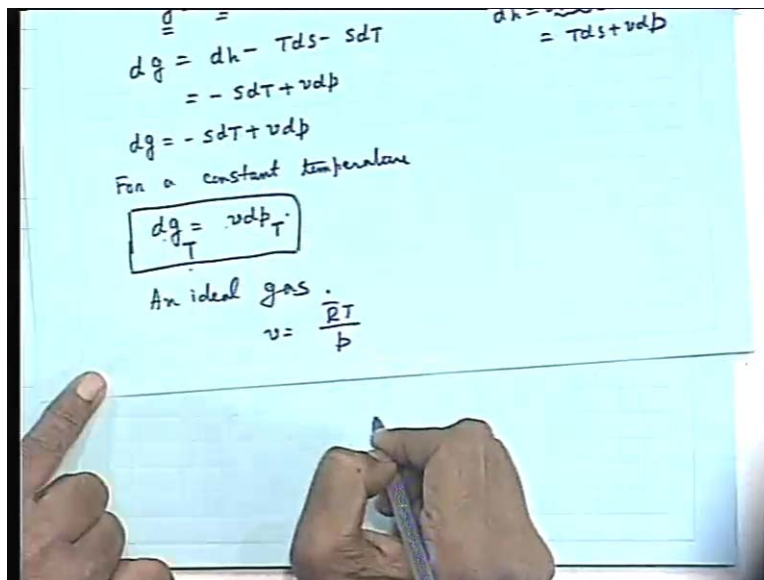 g = =
dg = dh - Tds - sdT
= - sdT + vdp
dg = - sdT + vdp
For a constant temperature
dg_T = vdp_T
An ideal gas.
v = R̅T/p
dh =
= Tds + vdp